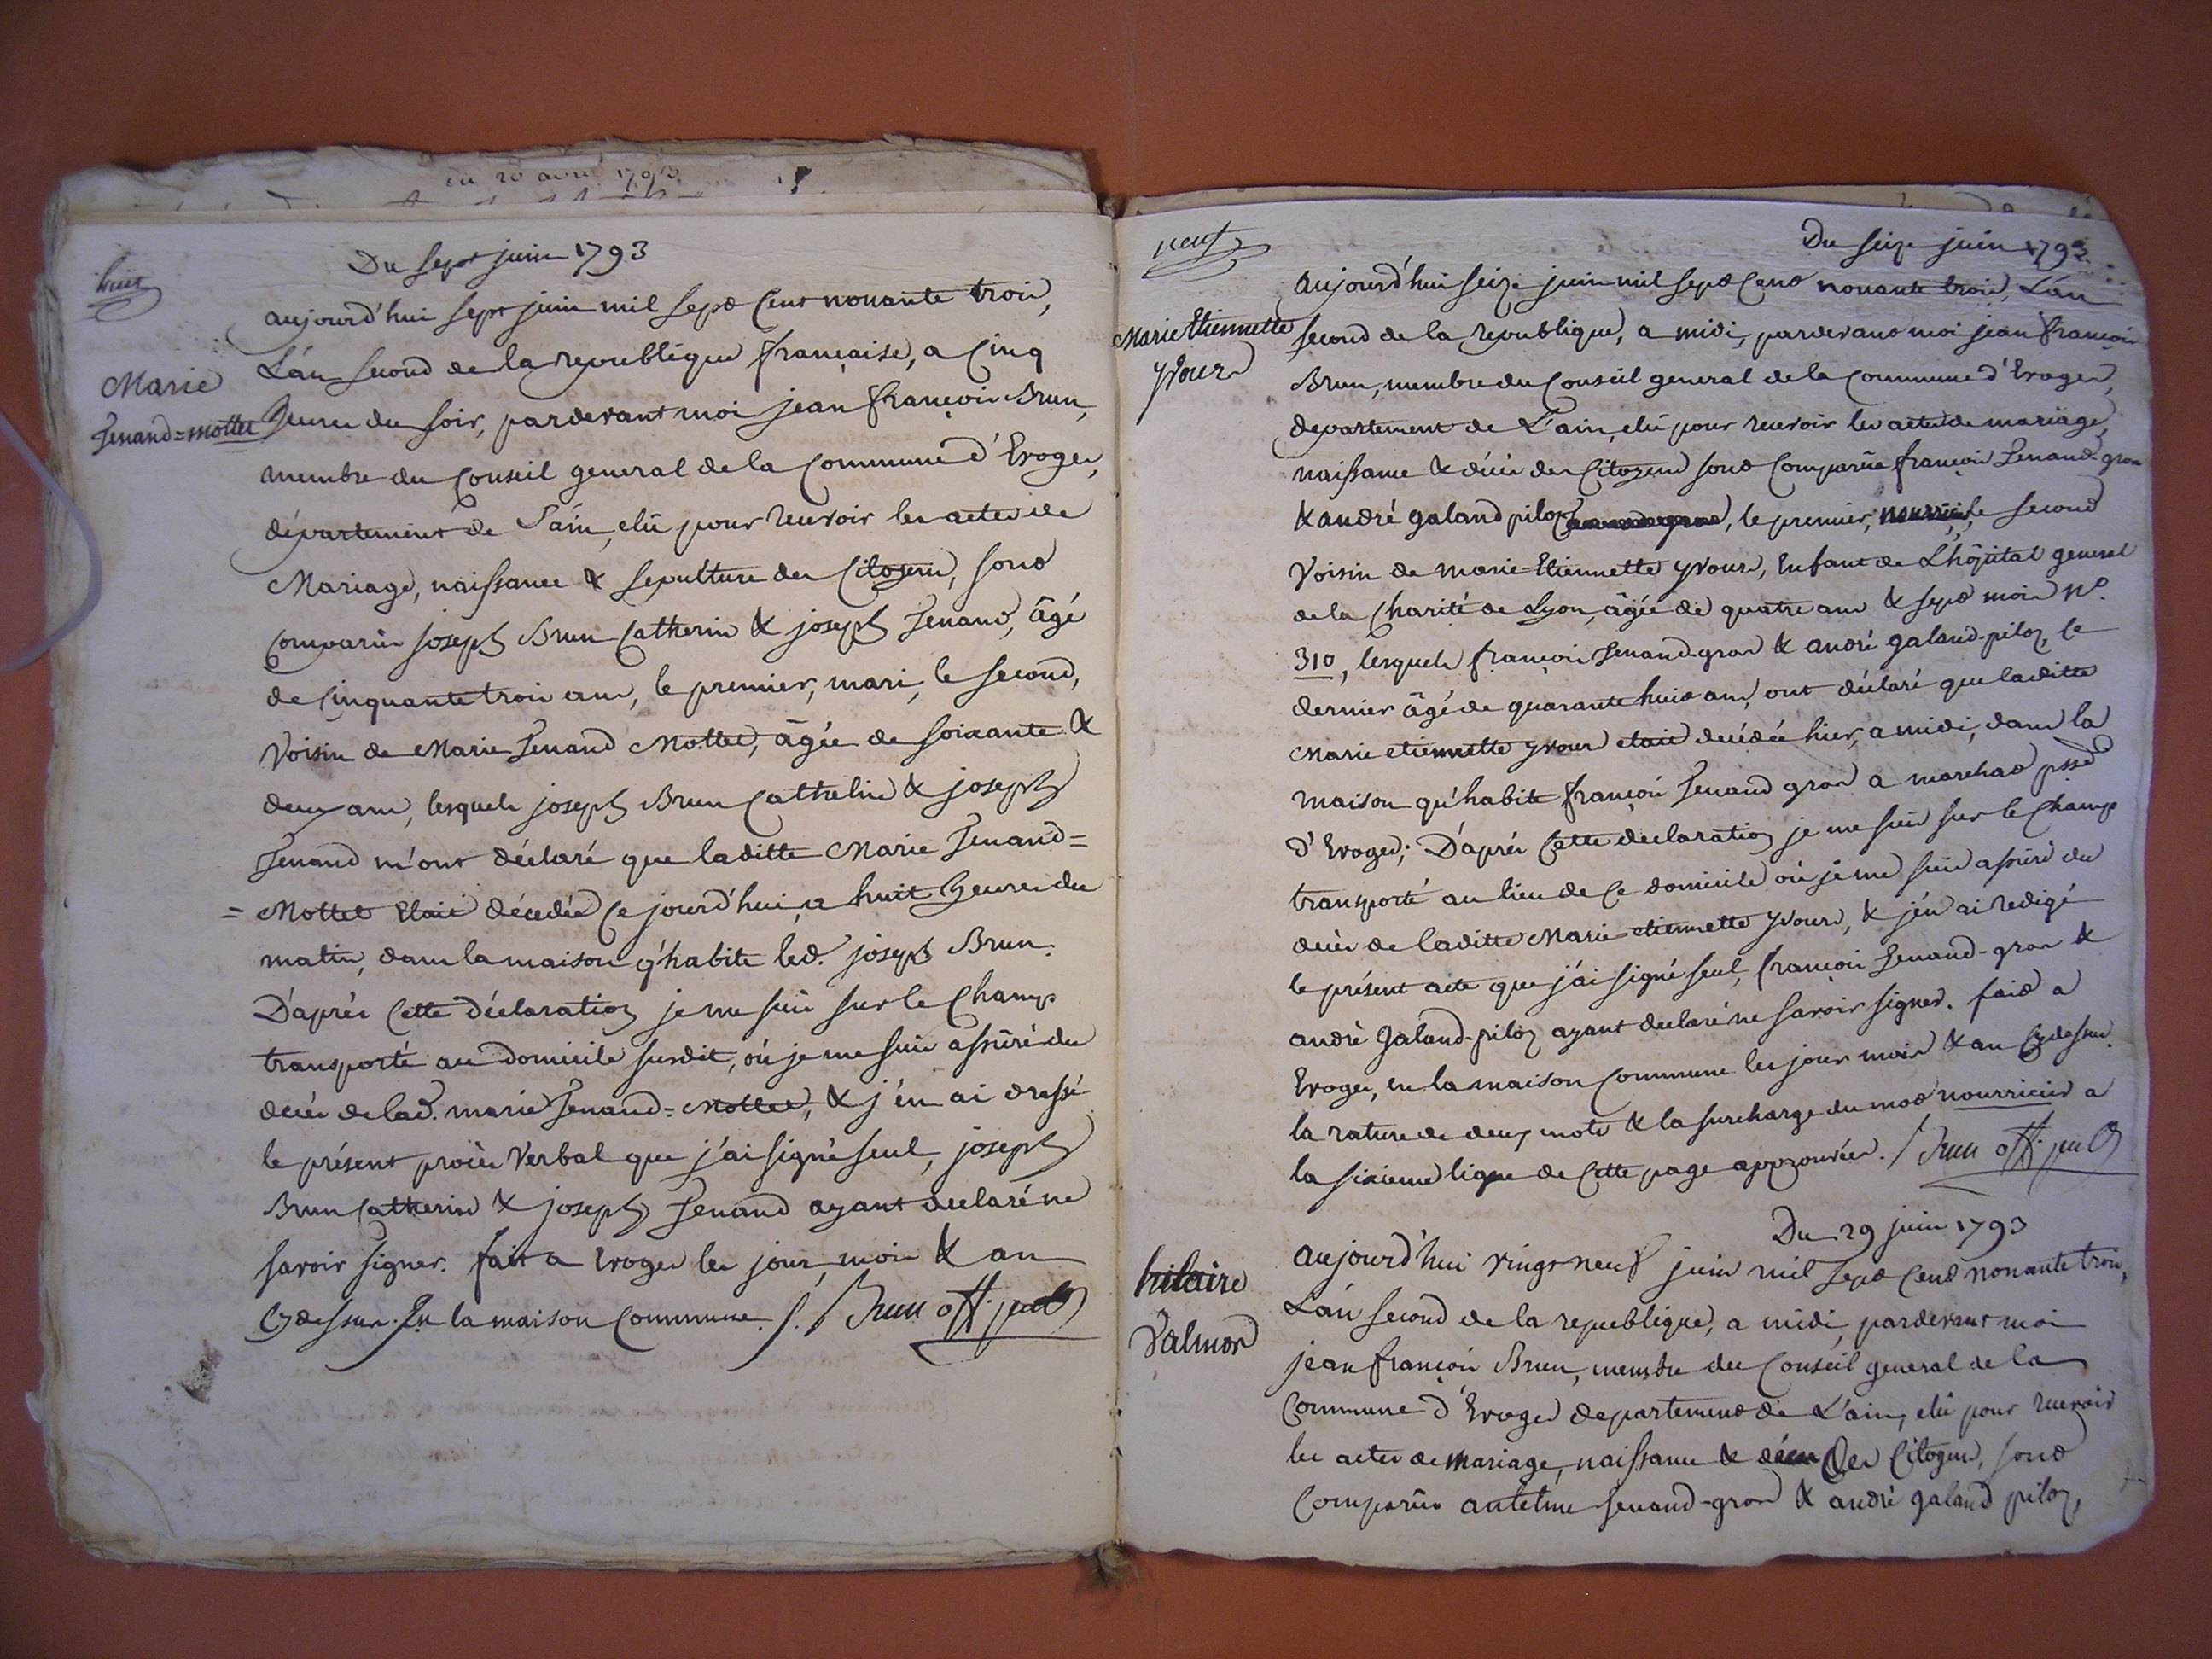 du 20 avril 1793
huit
Du sept juin 1793
Marie
Jenand=mottet
aujourd'hui sept juin mil sept cent nonante trois,
L'an second de la republique française, a cinq
heures du soir, pardevant moi jean françois Brun,
membre du conseil general de la commune d'Evoges,
département de l'ain, elû pour recevoir les actes de
Mariage, naissance & sepulture des citoyens, sont
comparûs joseph Brun Catherin & joseph Jenand, âgé
de cinquante trois ans, le premier, mari, le second,
voisin de Marie Jenand Mottet, âgée de soixante &
deux ans, lesquels joseph Brun Cathelin & joseph
Jenand m'ont déclaré que laditte Marie Jenand=
=Mottet etait décedée ce jourd'hui, a huit heures du
matin, dans la maison q'habite led. joseph Brun.
D'après cette déclaration je me suis sur le champ
transporté au domicile susdit, où je me suis assûré du
decès de lad. marie Jenand=Mottet, & j'en ai dressé
le présent procès verbal que j'ai signé seul, joseph
Brun Catherin & joseph Jenand ayant declaré ne
savoir signer. fait a Evoges les jour, mois & an
cydessus. En la maison commune. /. Brun off. publ
neuf
Du seize juin 1793
Marie Etiennette
yvours
aujourd'hui seize juin mil sept cent nonante trois, L'an
second de la republique, a midi, pardevant moi jean françois
Brun, membre du conseil general de la commune d'Evoges,
departement de L'ain, elû pour recevoir les actes de mariage,
naissance & décès des citoyens sont comparûs françois Jenand-gros
& andré galand piloz, le premier, nourricier, le second
voisin de marie=Etiennette yvours, enfant de L'hôpital general
de la Charité de Lyon, âgée de quatre ans & sept mois N.º
310, lesquels françois Jenand-gros & andré galand-piloz, ce
dernier âgé de quarante huit ans, ont déclaré que laditte
Marie etiennette yvours etait decédée hier, a midi, dans la
maison qu'habite françois Jenand gros a marchat psse
d'Evoges; D'après cette declaration je me suis sur le champ
transporté au lieu de ce domicile où je me suis assûré du
decès de laditte Marie etiennette yvours, & j'en ai redigé
le présent acte que j'ai signé seul, françois Jenand-gros &
andré galand-piloz ayant declaré ne savoir signer. fait a
Evoges, en la maison commune les jour mois & an cydessus.
la rature de deux mots & la surcharge du mot nourricier a
la sixieme ligne de cette page approuvées. / Brun off. publ
Du 29 juin 1793
hilaire
Valmord
aujourd'hui vingt neuf juin mil sept cent nonante trois,
L'an second de la republique, a midi, pardevant moi
jean françois Brun, membre du conseil general de la
commune d'Evoges departement de L'ain, elû pour recevoir
les actes de mariage, naissance & décès des citoyens, sont
comparûs antelme Jenand-gros & andré galand piloz,